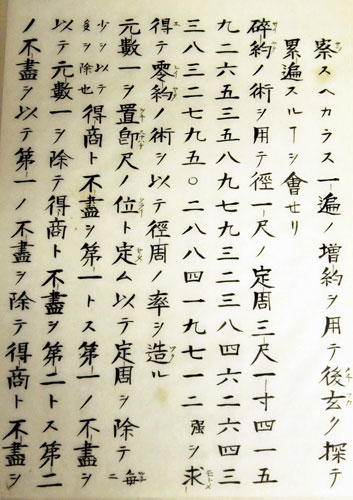 察スヘカラス一遍ノ増約ヲ用テ後玄ク探テ
累遍スルヿヲ會セリ
碎約ノ術ヲ用テ徑一尺ノ定周三尺一寸四一五
九二六五三五八九七九三二三八四六二六四三
三八三二七九五〇二八八四一九七一二強ヲ求
得テ零約ノ術ヲ以テ徑周ノ率ヲ造ル
元數一ヲ置卽尺ノ位ト定ム以テ定周ヲ除テ毎ニ
少ヲ以テ多ヲ除也得商ト不盡ヲ第一トス第一ノ不盡ヲ
以テ元數一ヲ除テ得商ト不盡ヲ第二トス第二
ノ不盡ヲ以テ第一ノ不盡ヲ除テ得商ト不盡ヲ